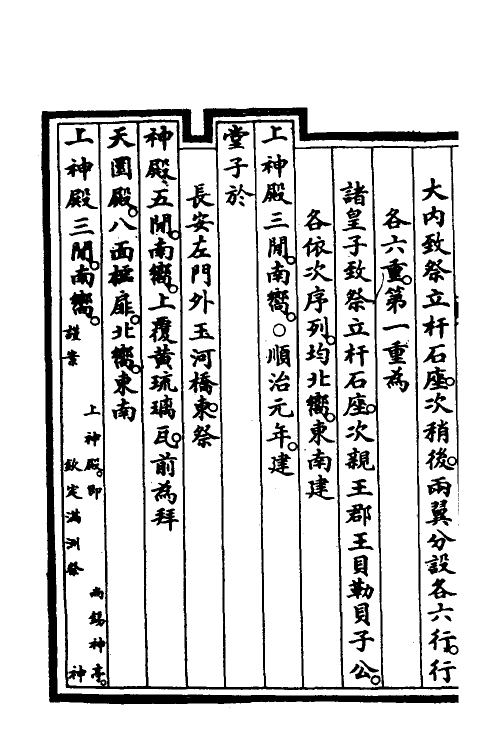 大内致祭立杆石座。次稍後。兩翼分設各六行。行
各六重。第一重為
諸皇子致祭立杆石座。次親王郡王貝勒貝子公。
各依次序列。均北嚮。東南建
上神殿三間。南嚮。○順治元年。建
堂子於
長安左門外玉河橋東。祭
神殿、五間。南嚮。上覆黃琉璃瓦。前為拜
天圓殿。八面櫺扉。北嚮。東南
上神殿三間。南嚮。謹案
上神殿。即 尚錫神亭。
欽定滿洲祭 神